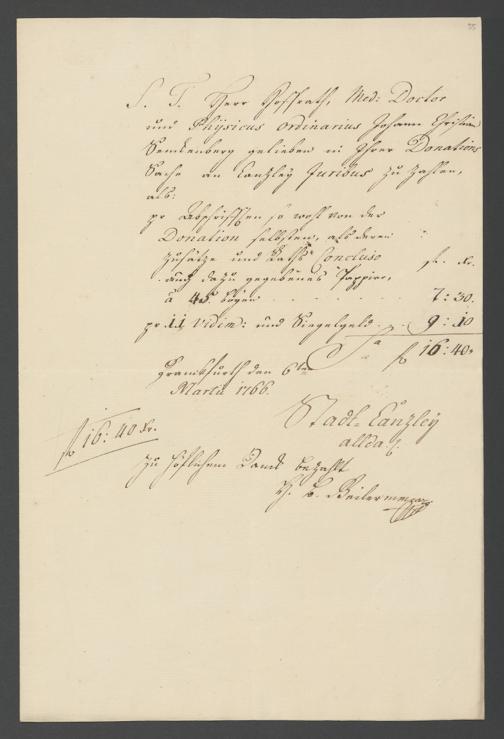 S. T. Herr Hoffrath, Med: Doctor
und Physicus ordinarius Johann Christian
Senckenberg gelieben in Ihrer Donations
Sache an Canzley Juribus zu zahlen,
als:
pr Abschrifften so wohl von der
Donation selbsten, als deren
Zusätze und Raths Concluso
auch dazu gegebenes Pappier,
fl. Xr.
à 45 Bögen 7:30.
pr 11 Vidim: und Siegelgeld 9:10
Sa fl 16:40.
Franckfurth den 6ten
Martii 1766.
Stadt-Canzley
allda.
fl 16:40 Xr.
zu höflichem Danck bezahlt